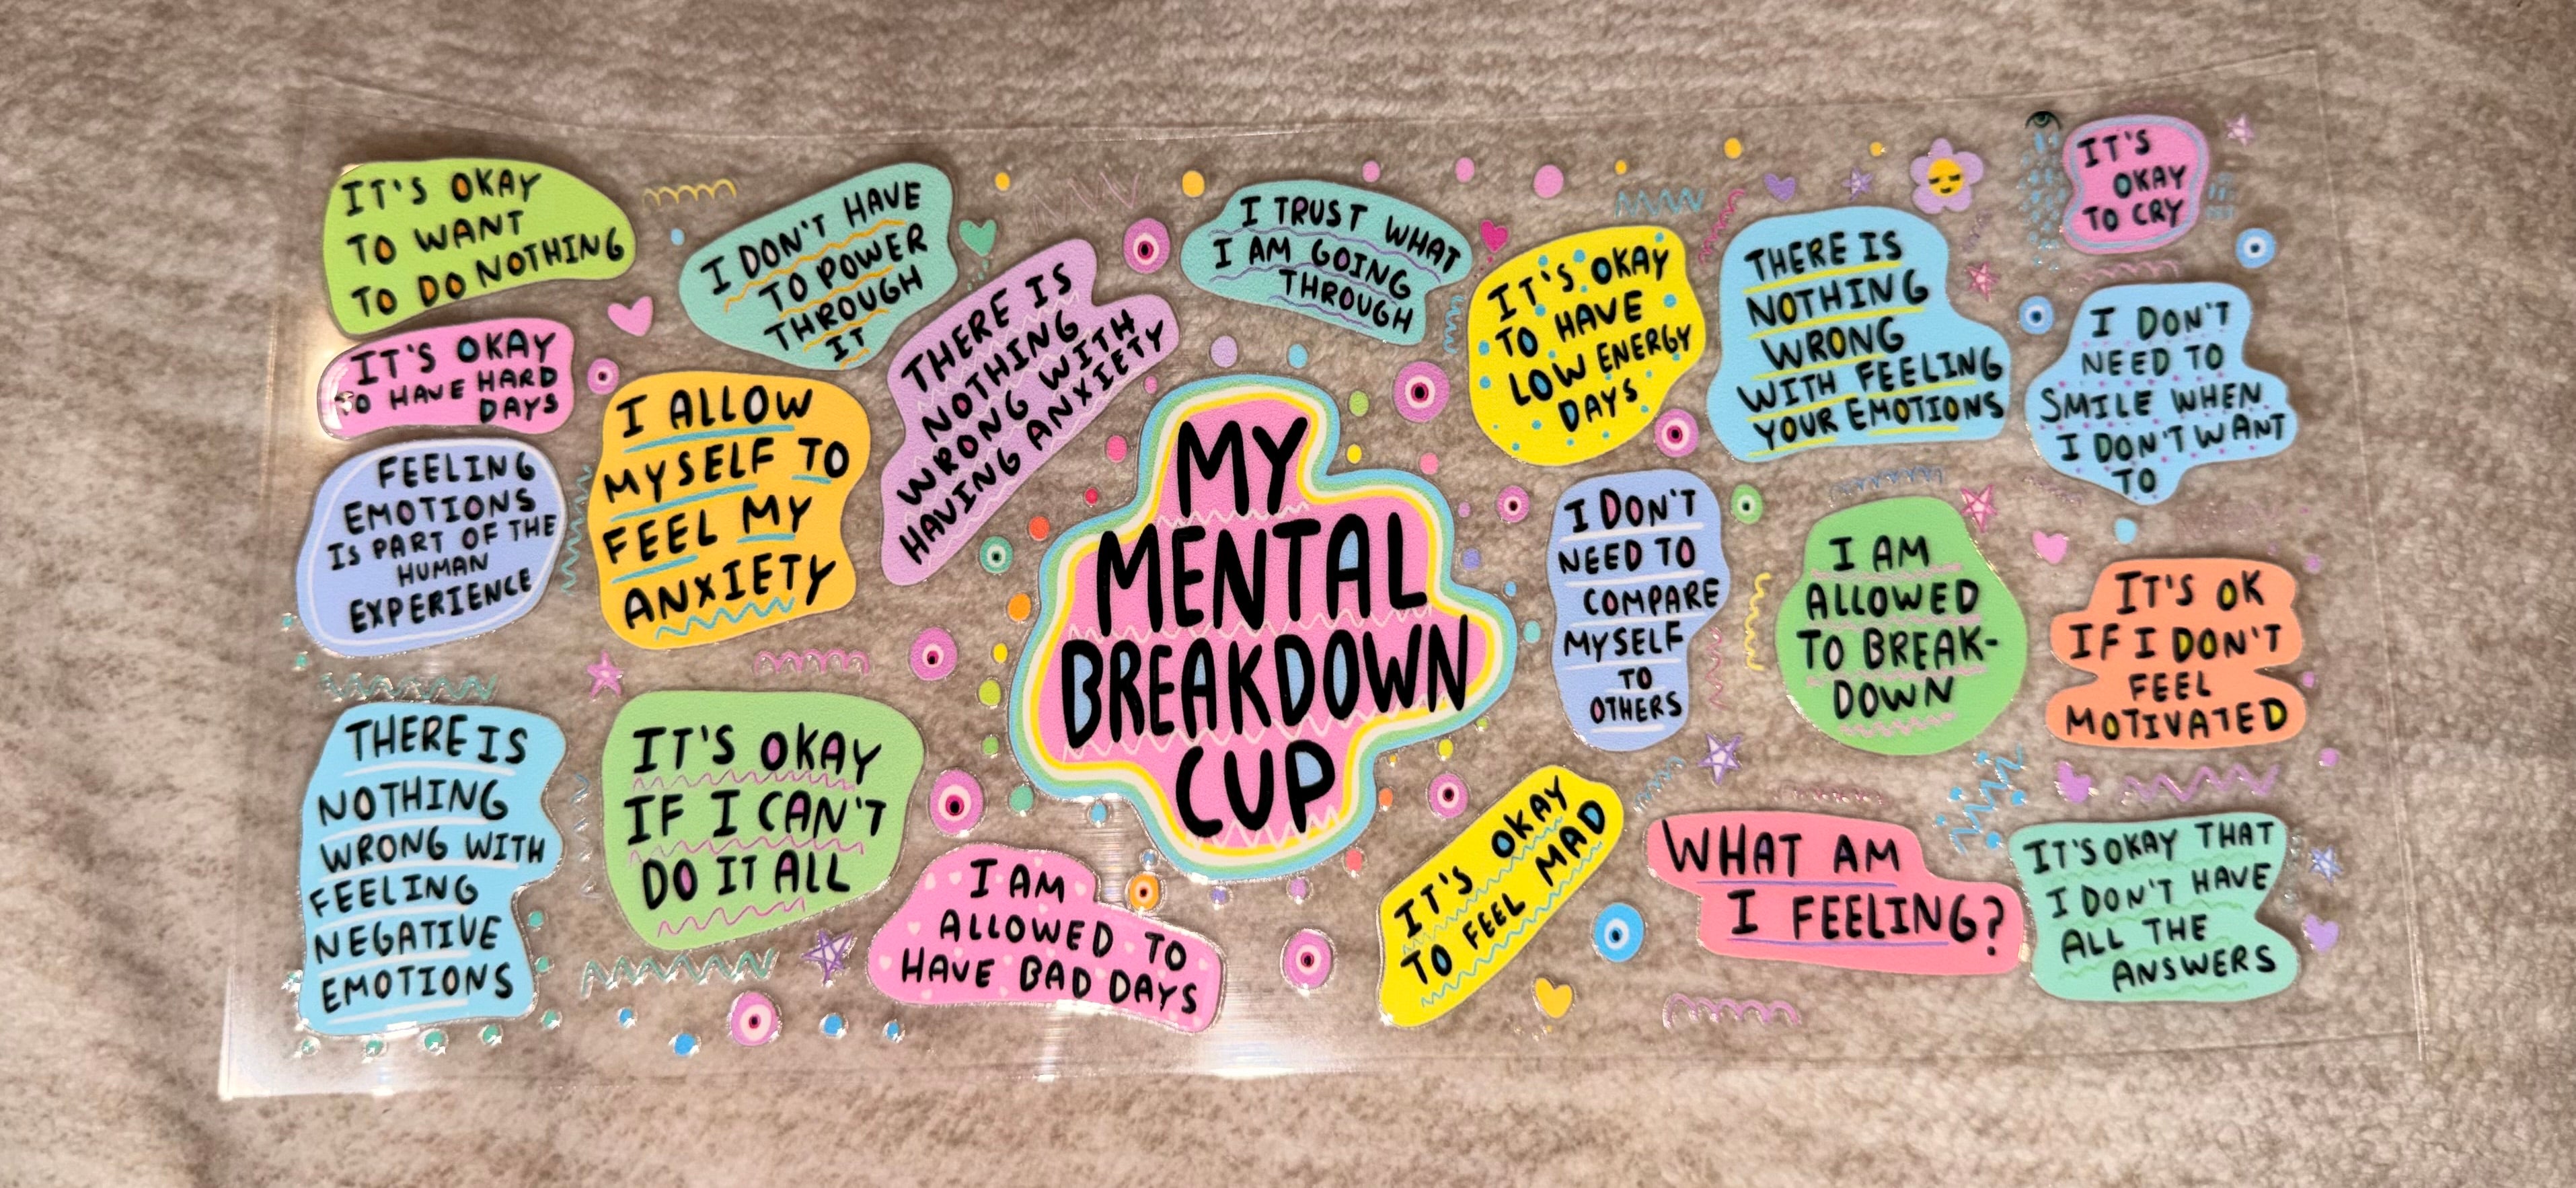 IT'S OKAY
TO WANT
TO DO NOTHING
I DON'T HAVE
TO POWER
THROUGH
IT
I TRUST WHAT
I AM GOING
THROUGH
IT'S
OKAY
TO CRY
IT'S OKAY
TO HAVE HARD
DAYS
I ALLOW
MYSELF TO
FEEL MY
ANXIETY
THERE IS
NOTHING
WRONG WITH
HAVING ANXIETY
IT'S OKAY
TO HAVE
LOW ENERGY
DAYS
THERE IS
NOTHING
WRONG
WITH FEELING
YOUR EMOTIONS
I DON'T
NEED TO
SMILE WHEN
I DON'T WANT
TO
FEELING
EMOTIONS
IS PART OF THE
HUMAN
EXPERIENCE
MY
MENTAL
BREAKDOWN
CUP
I DON'T
NEED TO
COMPARE
MYSELF
TO
OTHERS
I AM
ALLOWED
TO BREAK-
DOWN
IT'S OK
IF I DON'T
FEEL
MOTIVATED
THERE IS
NOTHING
WRONG WITH
FEELING
NEGATIVE
EMOTIONS
IT'S OKAY
IF I CAN'T
DO IT ALL
I AM
ALLOWED TO
HAVE BAD DAYS
IT'S OKAY
TO FEEL MAD
WHAT AM
I FEELING?
IT'S OKAY THAT
I DON'T HAVE
ALL THE
ANSWERS